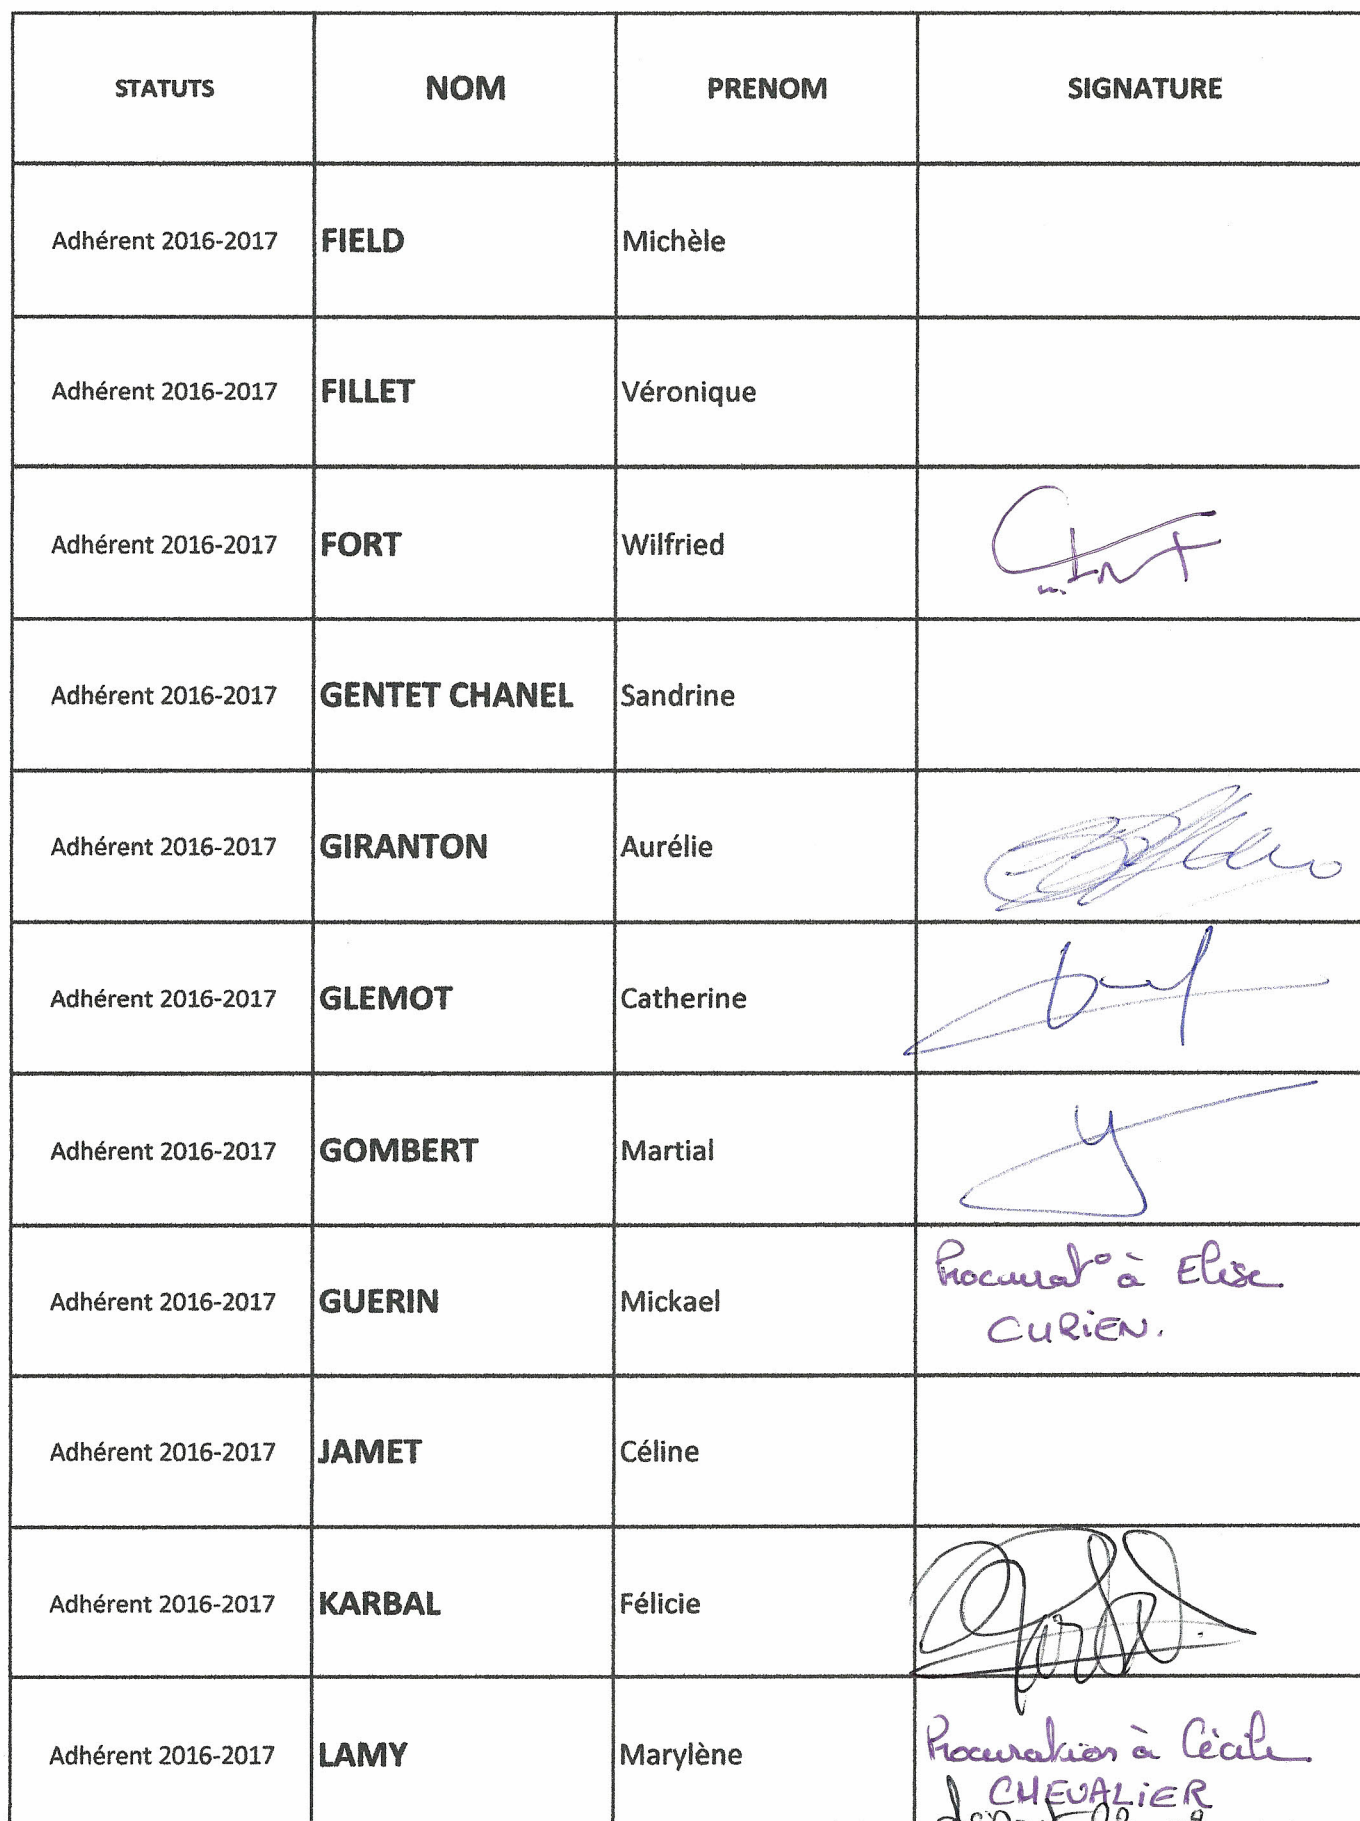 STATUTS NOM PRENOM SIGNATURE
Adhérent 2016-2017 FIELD Michèle
Adhérent 2016-2017 FILLET Véronique
Adhérent 2016-2017 FORT Wilfried
Adhérent 2016-2017 GENTET CHANEL Sandrine
Adhérent 2016-2017 GIRANTON Aurélie
Adhérent 2016-2017 GLEMOT Catherine
Adhérent 2016-2017 GOMBERT Martial
Adhérent 2016-2017 GUERIN Mickael Procurat° à Elise
CURIEN.
Adhérent 2016-2017 JAMET Céline
Adhérent 2016-2017 KARBAL Félicie
Adhérent 2016-2017 LAMY Marylène Procuration à Cécile
CHEVALIER